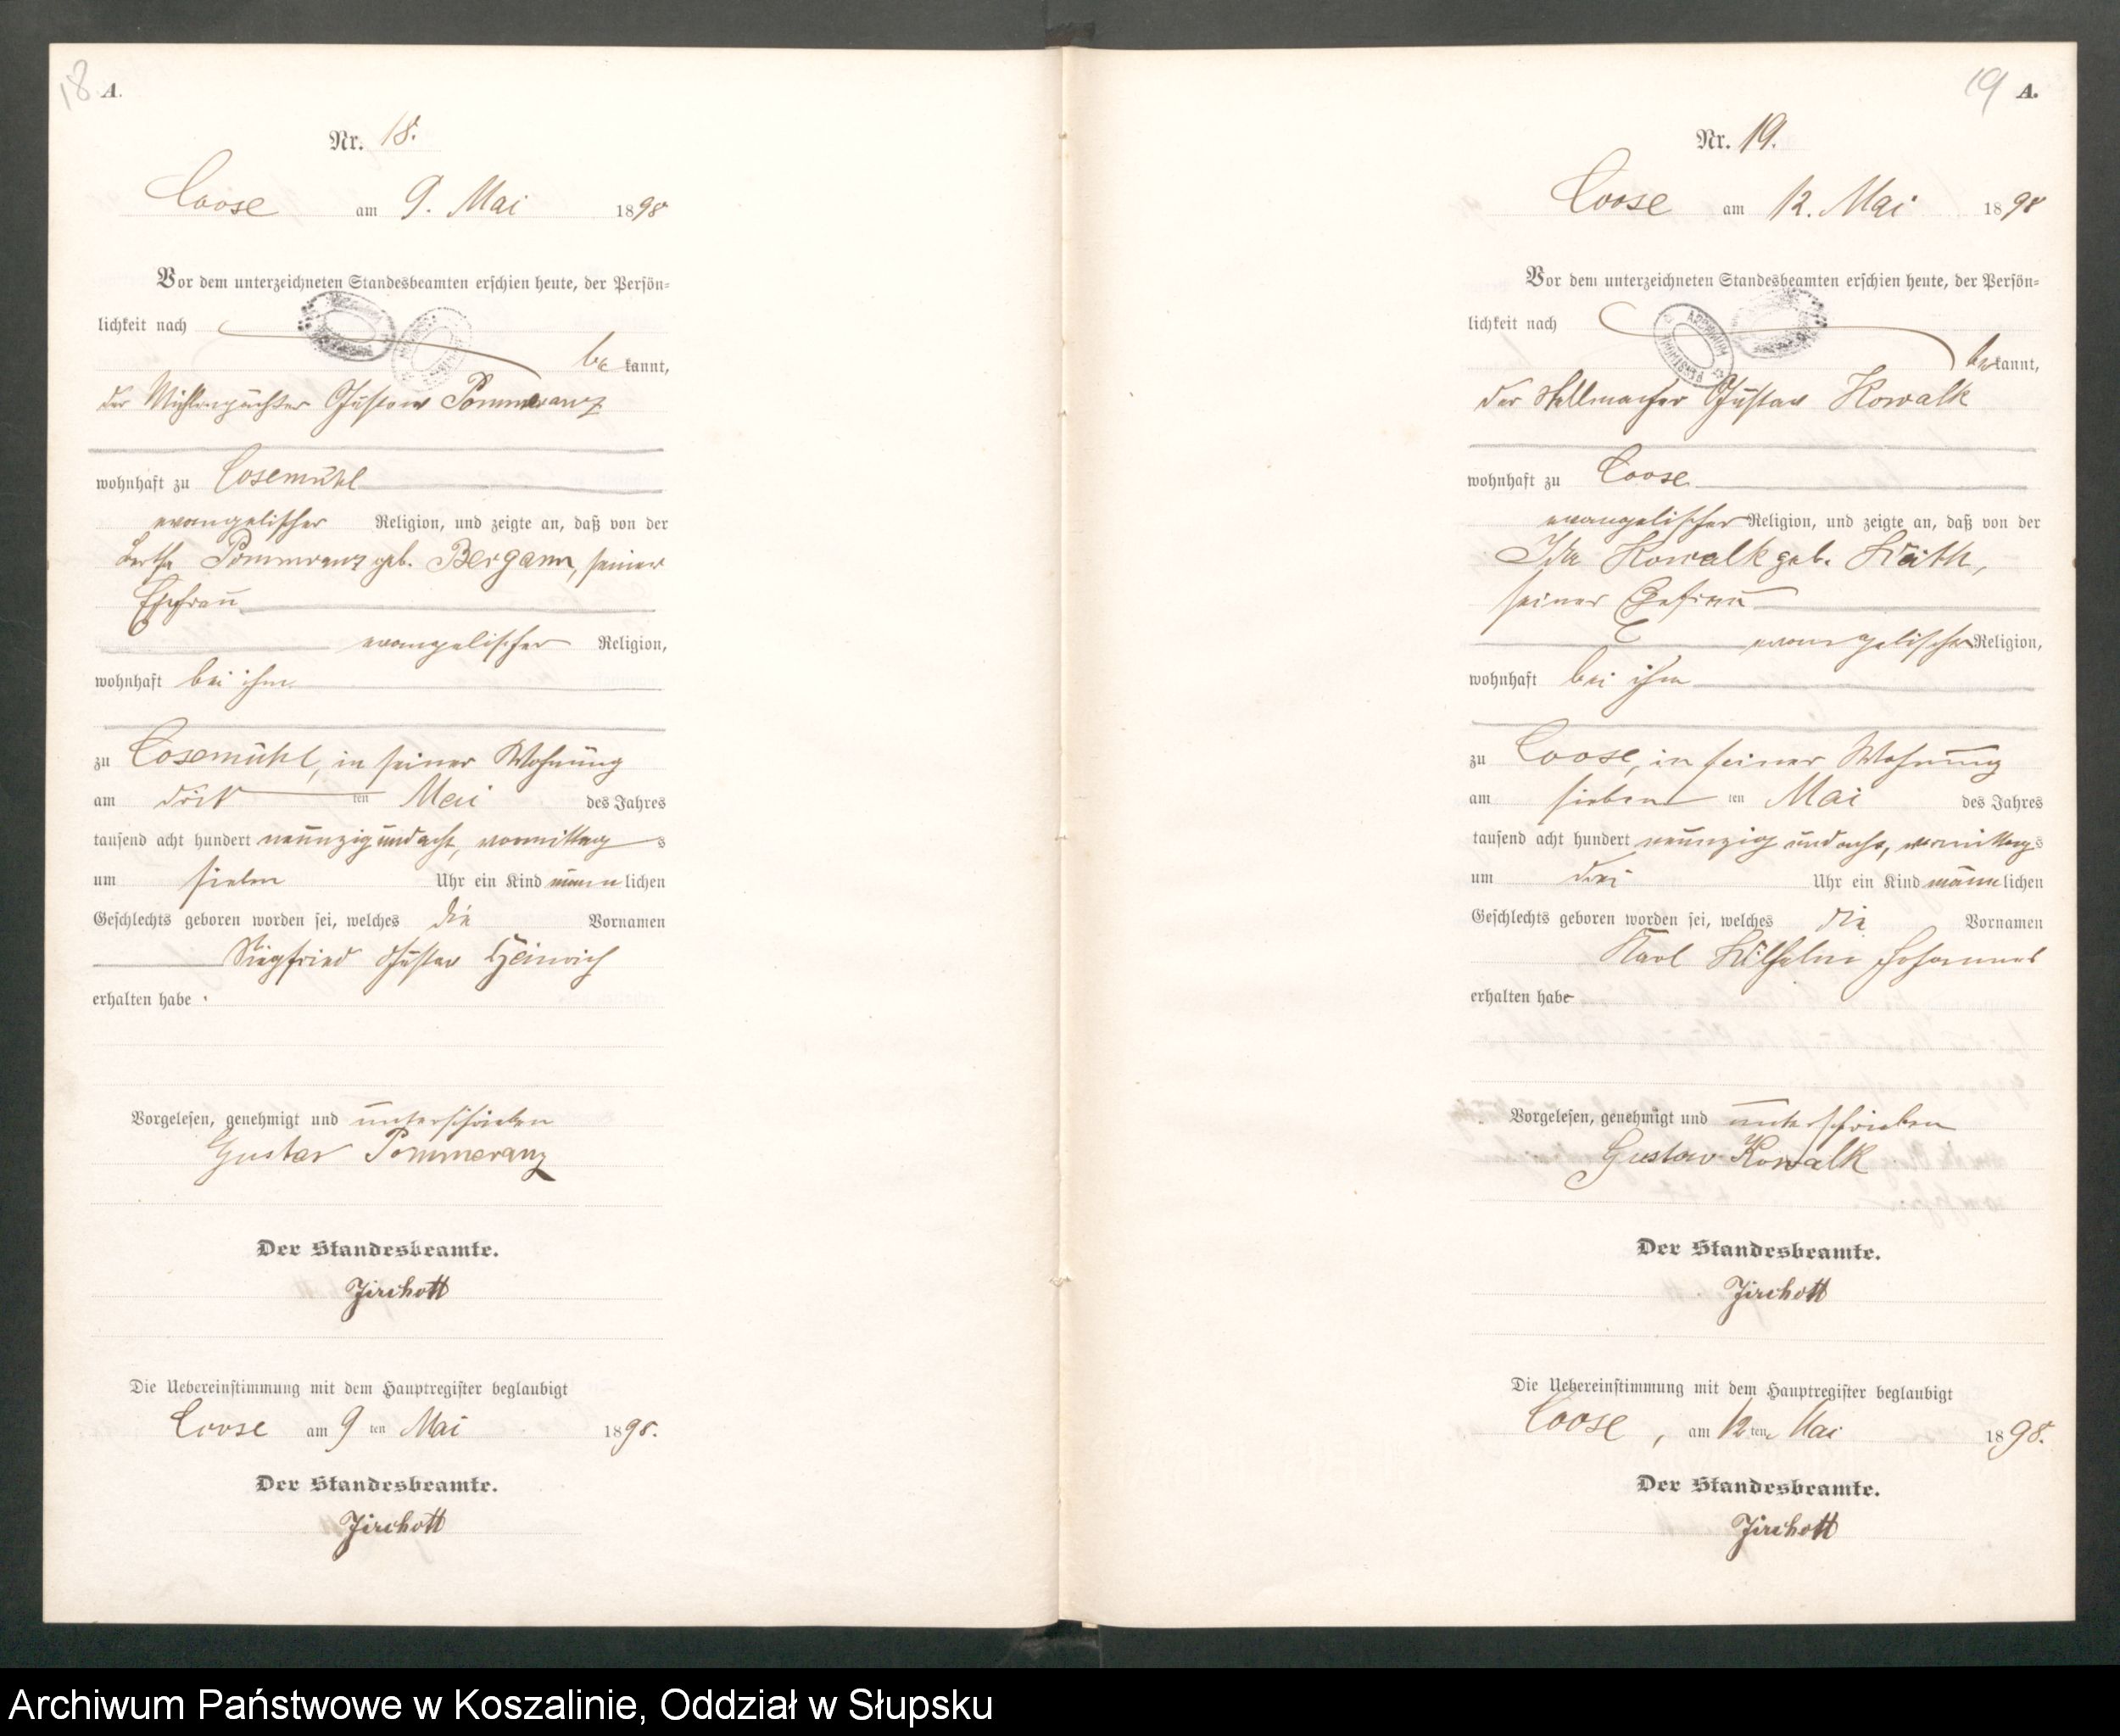 18 A.
Nr. 18.
Coose am 9. Mai 1898
Vor dem unterzeichneten Standesbeamten erschien heute, der Persön=
lichkeit nach
be kannt,
der Mühlenpächter Gustav Pommeranz
wohnhaft zu Cosemühl
evangelischer Religion, und zeigte an, daß von der
Bertha Pommeranz geb. Bergann, seiner
Ehefrau
evangelischer Religion,
wohnhaft bei ihm
zu Cosemühl, in seiner Wohnung
am ten Mai des Jahres
tausend acht hundert neunzig und acht, vormittag s
um sieben Uhr ein Kind männ lichen
Geschlechts geboren worden sei, welches die Vornamen
Siegfried Gustav Heinrich
erhalten habe.
Vorgelesen, genehmigt und unterschrieben
Gustav Pommeranz
Der Standesbeamte.
Jirchott
Die Uebereinstimmung mit dem Hauptregister beglaubigt
Coose am 9 ten Mai 1898.
Der Standesbeamte.
Jirchott
19 A.
Nr. 19.
Coose am 12. Mai 1898
Vor dem unterzeichneten Standesbeamten erschien heute, der Persön=
lichkeit nach
be kannt,
ARCHIWUM
der Stellmacher Gustav Kowalk
wohnhaft zu Coose
evangelischer Religion, und zeigte an, daß von der
Ida Kowalk geb. Käth,
seiner Ehefrau
evangelischer Religion,
wohnhaft bei ihm
zu Coose, in seiner Wohnung
am sieben ten Mai des Jahres
tausend acht hundert neunzig und acht, vormittag s
um drei Uhr ein Kind männ lichen
Geschlechts geboren worden sei, welches die Vornamen
Karl Wilhelm Johannes
erhalten habe
Vorgelesen, genehmigt und unterschrieben
Gustav Kowalk
Der Standesbeamte.
Jirchott
Die Uebereinstimmung mit dem Hauptregister beglaubigt
Coose, am 12 ten Mai 1898.
Der Standesbeamte.
Jirchott
Archiwum Państwowe w Koszalinie, Oddział w Słupsku